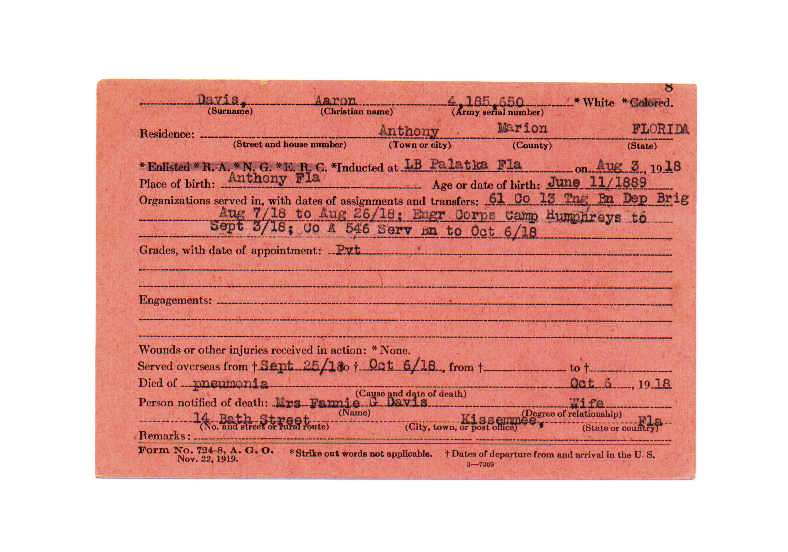 8
Davis, Aaron 4,185,650 *White *Colored.
(Surname) (Christian name) (Army serial number)
Residence: Anthony Marion FLORIDA
(Street and house number) (Town or city) (County) (State)
*Enlisted *R. A. *N. G. *E. R. C. *Inducted at LB Palatka Fla on Aug 3, 1918
Place of birth: Anthony Fla Age or date of birth: June 11/1889
Organizations served in, with dates of assignments and transfers: 61 Co 13 Tng Bn Dep Brig
Aug 7/18 to Aug 26/18; Engr Corps Camp Humphreys to
Sept 3/18; Co A 546 Serv Bn to Oct 6/18
Grades, with date of appointment: Pvt
Engagements:
Wounds or other injuries received in action: *None.
Served overseas from † Sept 25/18 to † Oct 6/18, from † to †
Died of pneumonia Oct 6, 1918
(Cause and date of death)
Person notified of death: Mrs Fannie G Davis Wife
(Name) (Degree of relationship)
14 Bath Street Kissemmee, Fla
(No. and street or rural route) (City, town, or post office) (State or country)
Remarks:
Form No. 724-8, A. G. O. *Strike out words not applicable. † Dates of departure from and arrival in the U. S.
Nov. 22, 1919. 3—7369